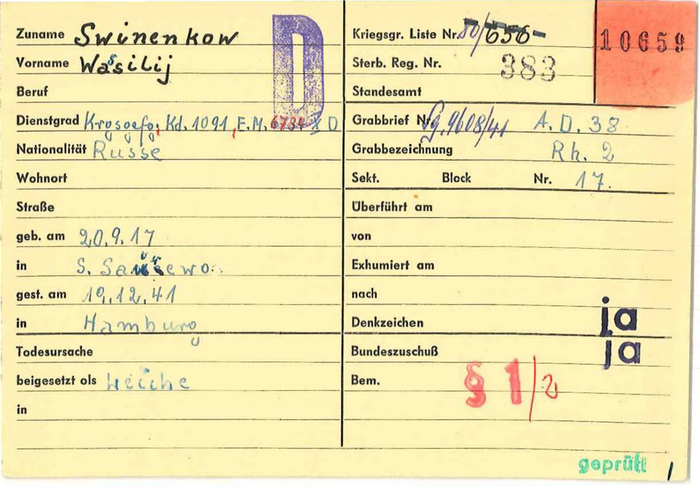 Zuname Swinenkow
Vorname Wasilij
Beruf
Dienstgrad Krgsgefg. Kd. 1091, E.M. 6734 X D
Nationalität Russe
Wohnort
Straße
geb. am 20.9.17
in S.
gest. am 19.12.41
in Hamburg
Todesursache
beigesetzt als Leiche
in
D
Kriegsgr. Liste Nr. 656
Sterb. Reg. Nr. 383
Standesamt
Grabbrief Nr. 9608/41 A.D. 38
Grabbezeichnung Rh. 2
Sekt. Block Nr. 17.
Überführt am
von
Exhumiert am
nach
Denkzeichen ja
Bundeszuschuß ja
Bem. § 1/2
10659
geprüft